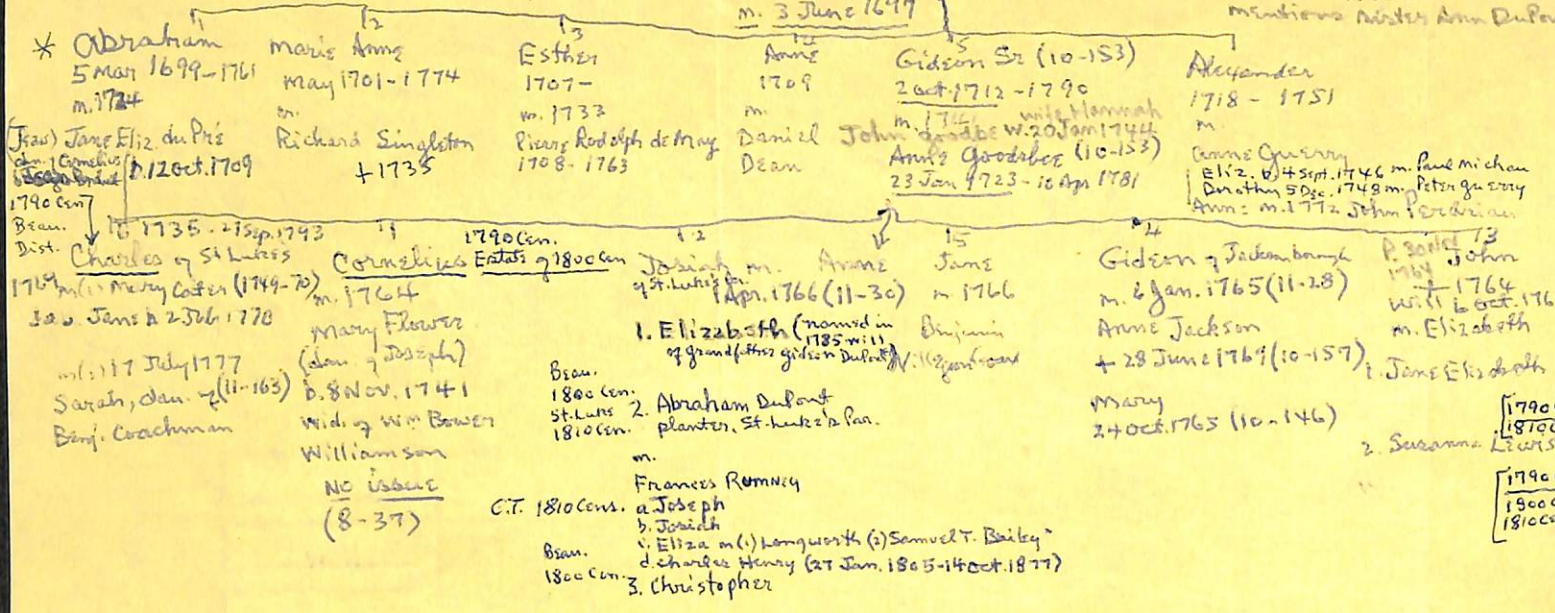 m. 3 June 1697
mentions sister Ann DuPon
1
* Abraham
5 Mar 1699-1761
m. 1724
(Jean) Jane Eliz. du Pré
dau. of Cornelius
b. 12 Oct. 1709
1790 Cen
Beau.
Dist.
2
Marie Anne
May 1701-1774
m.
Richard Singleton
+ 1735
3
Esther
1707-
m. 1733
Pierre Rodolph de May
1708-1763
4
Anne
1709
m.
Daniel
Dean
5
Gideon Sr (10-153)
2 Oct. 1712-1790
wife Hannah
John Goodbe w. 20 Jan 1744
Anne Goodsbee (10-153)
23 Jan 1723-16 Apr 1781
Alexander
1718-1751
m.
Anne Guerry
Eliz. b. 4 Sept. 1746 m. Paul Michau
Dorothy 5 Dec. 1748 m. Peter Guerry
Ann: m. 1772 John Perdriau
1735-21 Sep. 1793
Charles of St Lukes
m(1) Mary Cater (1749-70)
m(2) 17 July 1777
Sarah, dau. of (11-163)
Benj. Coachman
1
1790 Cen.
Cornelius Estate of 1800 Cen
m. 1764
Mary Flower
(dau. of Joseph)
b. 8 Nov. 1741
wid. of Wm Bower
Williamson
No issue
(8-37)
2
Josiah m. Anne
of St. Lukes Par.
1 Apr. 1766 (11-30)
1. Elizabeth (named in
1785 will
of grandfather Gideon DuPont)
Beau.
1800 Cen.
St. Luke
1810 Cen.
2. Abraham DuPont
planter, St. Luke's Par.
m.
Frances Rumney
C.T. 1810 Cens. a. Joseph
b. Josiah
c. Eliza m (1) Longworth (2) Samuel T. Bailey
d. Charles Henry (27 Jan. 1805-14 Oct. 1877)
Beau.
1800 Cen.
3. Christopher
5
Jane
m. 1766
Benjamin
4
Gideon of Jacksonborough
m. 6 Jan. 1765 (11-28)
Anne Jackson
+ 28 June 1769 (10-157)
Mary
24 Oct. 1765 (10-146)
3
John
+ 1764
will 6 Oct. 176
m. Elizabeth
1. Jane Elizabeth
[1790
1810 C
2. Susanna Lewis
[1790
1800 C
1810 Ce